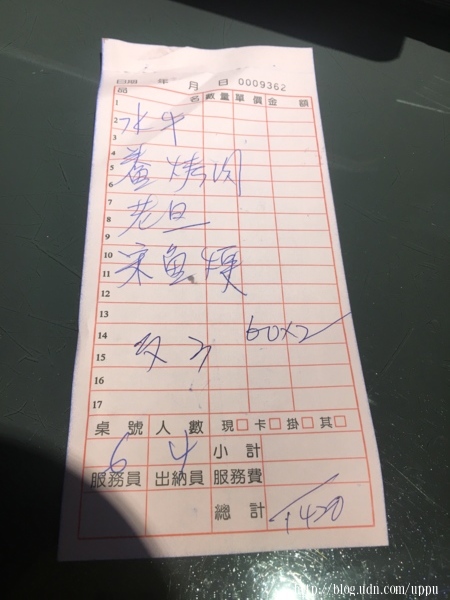 日期 年 月 日 0009362
品 名 數量 單價 金 額
1
2 水牛
3
4
5 鯗烤肉
6
7 老豆
8
9
10 宋魚羹
11
12
13
14 60x2
15
16
17
桌號 人數 現□ 卡□ 掛□ 其□
6 4 小計
服務員 出納員 服務費
總計 1420
http://blog.udn.com/uppu